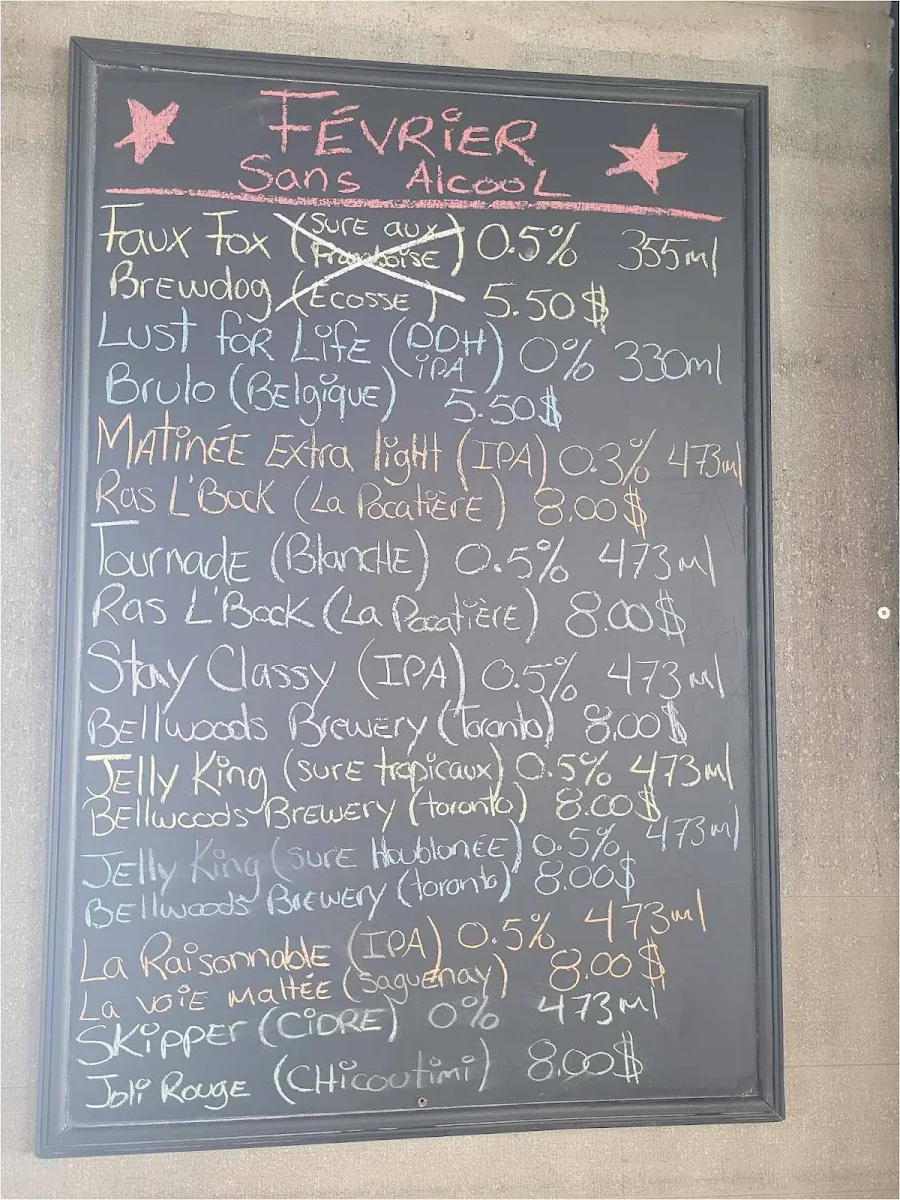 FÉVRiER
Sans AlcooL
Faux Fox (SURE aux Framboise) 0.5% 355ml
Brewdog (Écosse) 5.50$
Lust foR LiFE (DDH iPA) 0% 330ml
Brulo (Belgique) 5.50$
MATinÉE Extra light (IPA) 0.3% 473ml
Ras L'Bock (La PocatièRE) 8.00$
Tournade (BlancHE) 0.5% 473ml
Ras L'Bock (La PocatièRE) 8.00$
Stay Classy (IPA) 0.5% 473ml
Bellwoods Brewery (Toronto) 8.00$
Jelly King (surE tropicaux) 0.5% 473ml
BEllwoods BREWERY (toronto) 8.00$
JElly King (surE HoublonéE) 0.5% 473ml
BEllwoods BREWERY (toronto) 8.00$
La Raisonnable (IPA) 0.5% 473ml
La voiE maltéE (Saguenay) 8.00$
SKippER (CiDRE) 0% 473ml
Joli RougE (CHicoutimi) 8.00$